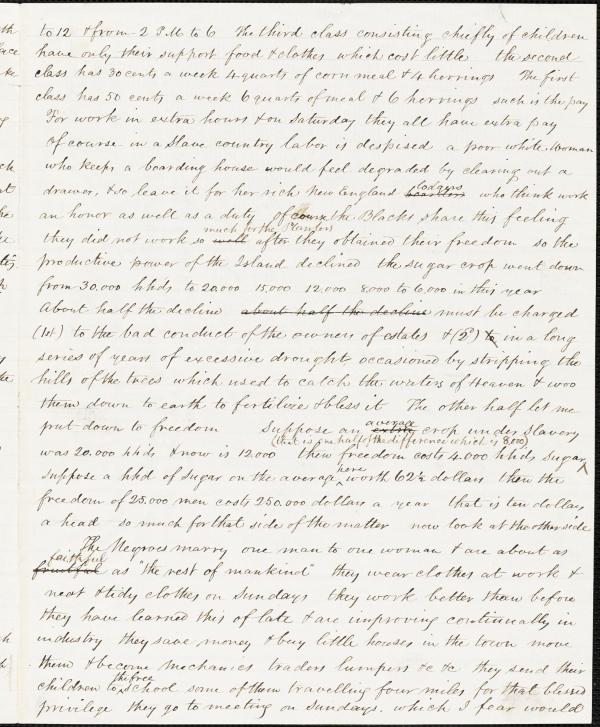 to 12 & from 2 P.M to 6 The third class consisting chiefly of children
have only their support food & clothes which cost little the second
class has 30 cents a week 4 quarts of corn meal & 4 herrings The first
class has 50 cents a week 6 quarts of meal & 6 herrings such is the pay
For work in extra hours & on Saturday they all have extra pay
Of course in a Slave country labor is despised a poor white woman
who keeps a boarding house would feel degraded by clearing out a
drawer, & so leave it for her rich New England boarders lodgers who think work
an honor as well as a duty of course the Blacks share this feeling
they did not work so well much for the Planters after they obtained their freedom so the
productive power of the Island declined the sugar crop went down
from 30.000 hhds to 20.000 15,000 12,000 8,000 to 6,000 in this year
About half the decline about half the decline must be charged
(1st) to the bad conduct of the owners of estates & (2d) to in a long
series of years of excessive drought occasioned by stripping the
hills of the trees which used to catch the waters of Heaven & woo
them down to earth to fertilize & bless it The other half let me
put down to freedom Suppose an average crop under Slavery
was 20.000 hhds & now is 12.000 then freedom costs 4.000 hhds sugar
(that is one half of the difference which is 8,000)
suppose a hhd of sugar on the average here worth 62½ dollars then the
freedom of 25.000 men costs 250.000 dollars a year that is ten dollars
a head so much for that side of the matter now look at the other side
The Negroes marry one man to one woman & are about as
fruitful faithful as "the rest of mankind" they wear clothes at work &
neat & tidy clothes on Sundays they work better than before
they have learned this of late & are improving continually in
industry they save money & buy little houses in the town move
them & become mechanics traders lumpers &c &c they send their
children to the free school some of them travelling four miles for that blessed
privilege they go to meeting on Sundays. which I fear would